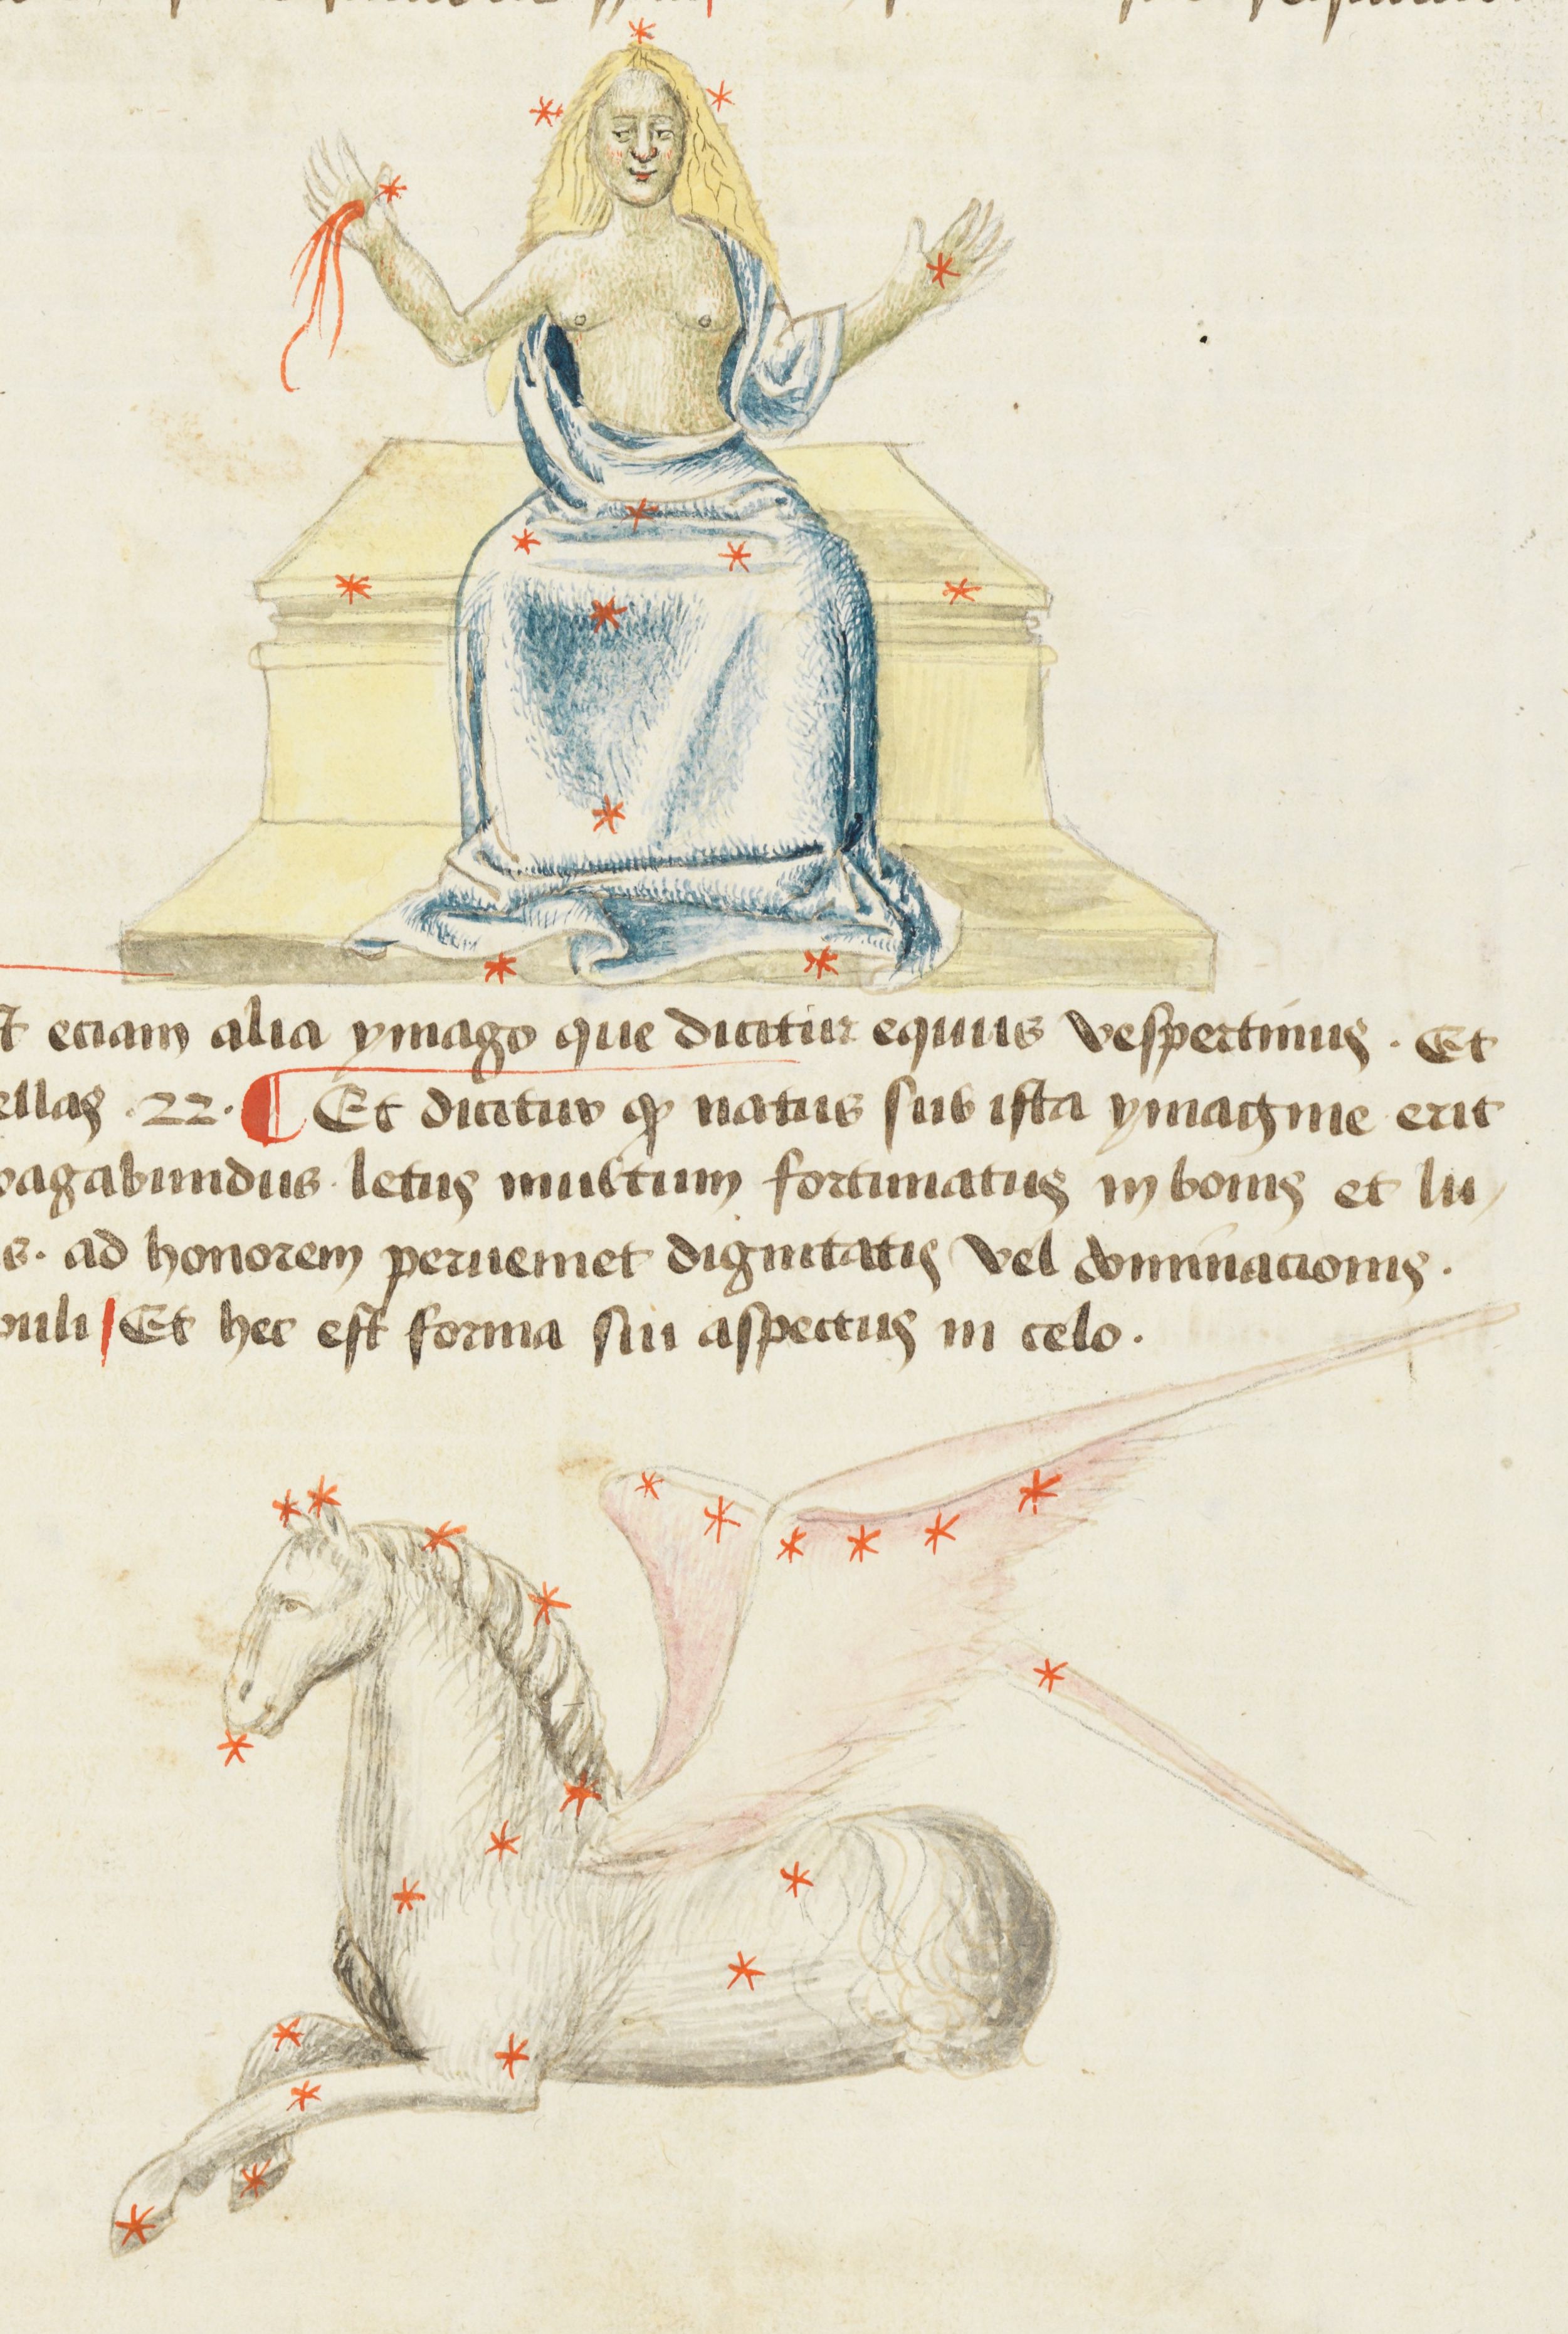 eciam alia ymago que dicitur equus vespertinus . Et
ellas .22. ¶ Et dicitur ꝙ natus sub ista ymagine erit
vagabundus letus multum fortunatus in bonis et lu
s. ad honorem perueniet dignitatis vel dominacionis .
puli Et hec est forma sui aspectus in celo .